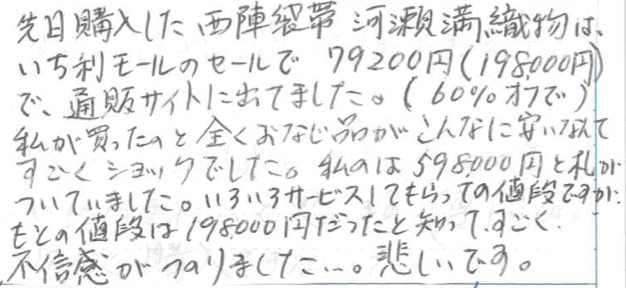 先日購入した 西陣袋帯 河瀬満織物は、
いち利モールのセールで 79200円(198,000円)
で、通販サイトに出てました。(60%オフで)
私が買ったのと全くおなじ品がこんなに安いなんて
すごくショックでした。私のは598000円と札が
ついていました。いろいろサービスしてもらっての値段ですが、
もとの値段は198000円だったと知って、すごく
不信感がつのりました…。悲しいです。